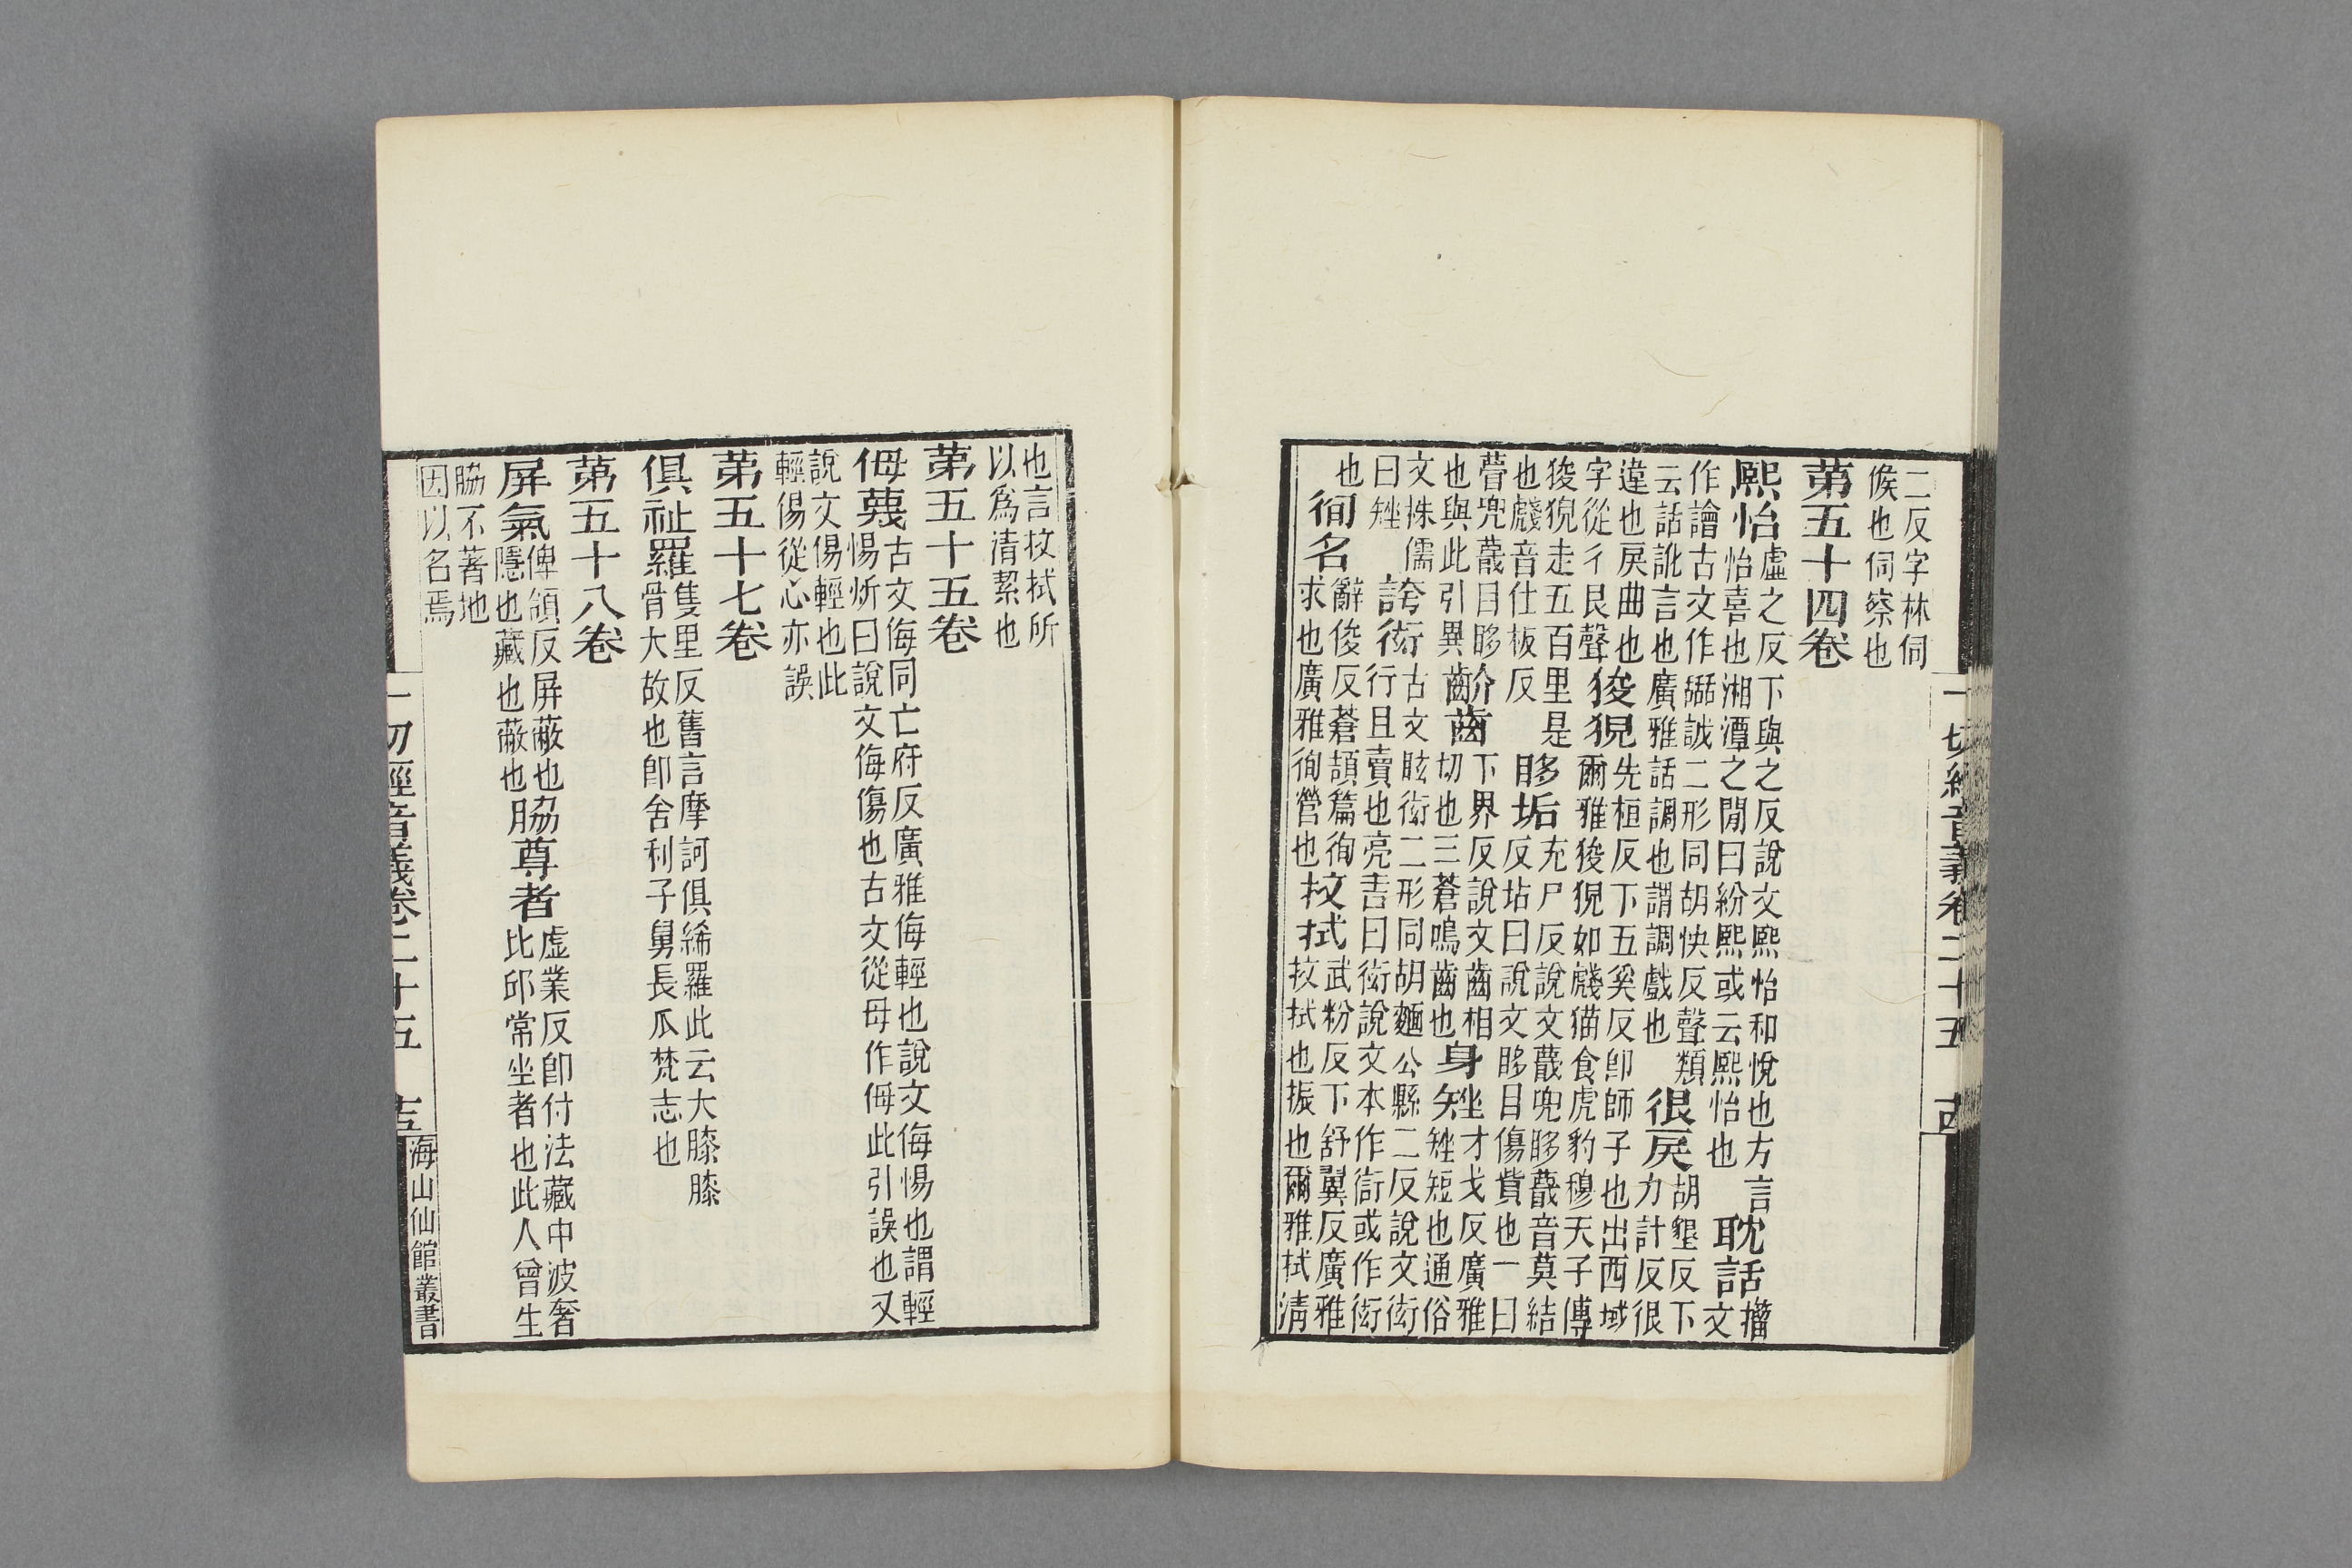 二反字林伺
候也伺察也
第五十四卷
熙怡虛之反下與之反說文熙怡和悅也方言
怡喜也湘潭之閒曰紛熙或云熙怡也
耽話籀文
作譮古文作𦧵諙二形同胡快反聲類
云話訛言也廣雅話調也謂調戲也
很戾胡墾反下力計反很
違也戾曲也
字從彳艮聲
狻猊先桓反下五奚反卽師子也出西域
爾雅狻猊如虦猫食虎豹穆天子傳
狻猊走五百里是
也虦音仕板反
眵垢充尸反說文蔑兜眵蔑音莫結
反坫曰說文眵目傷眥也一曰
瞢兜蔑目眵
也與此引異
齘齒下界反說文齒相
切也三蒼鳴齒也
身矬才戈反廣雅
矬短也通俗
文侏儒
曰矬
誇衒古文眩衒二形同胡麵公縣二反說文衒
行且賣也亮吉曰衒說文本作衙或作衒
也
徇名辭俊反蒼頡篇徇
求也廣雅徇營也
抆拭武粉反下舒翼反廣雅
抆拭也振也爾雅拭清
一切經音義卷二十五 古
也言抆拭所
以爲清絜也
第五十五卷
侮蔑古文侮同亡府反廣雅侮輕也說文侮惕也謂輕
惕炘曰說文侮傷也古文從母作㑄此引誤也又
說文傷輕也此
輕傷從心亦誤
第五十七卷
俱祉羅隻里反舊言摩訶俱絺羅此云大膝膝
骨大故也卽舍利子舅長爪梵志也
第五十八卷
屏氣俾領反屛蔽也
隱也藏也蔽也
脇尊者虛業反卽付法藏中波奢
比邱常坐者也此人曾生
脇不著地
因以名焉
一切經音義卷二十五 
海山仙館叢書